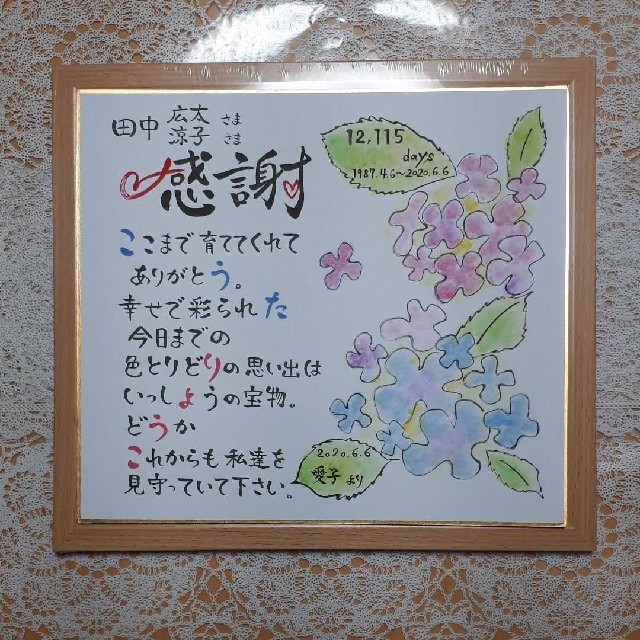 田中 広太 さま
涼子 さま
感謝
ここまで育ててくれて
ありがとう。
幸せで彩られた
今日までの
色とりどりの思い出は
いっしょうの宝物。
どうか
これからも私達を
見守っていて下さい。
12,115
days
1987.4.6～2020.6.6
2020.6.6
愛子より